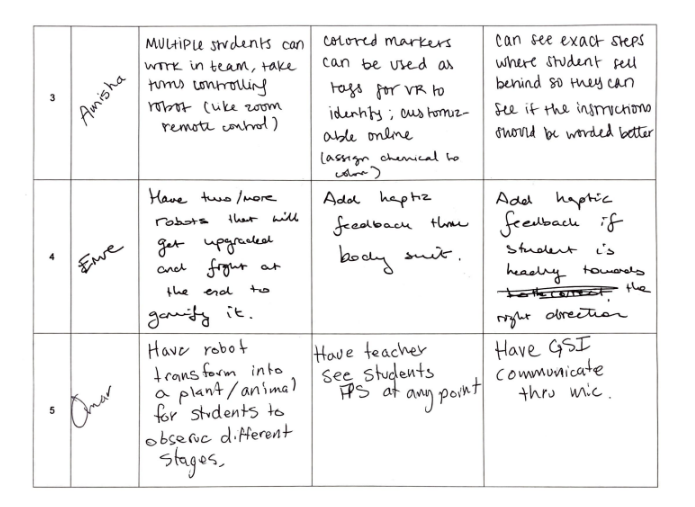 3
Amisha
MULTIPLE students can
work in team, take
turns controlling
robot (like zoom
remote control)
colored markers
can be used as
tags for VR to
identify; customiz-
able online
(assign chemical to
color)
can see exact steps
where student fell
behind so they can
see if the instructions
should be worded better
4
Have two/more
robots that will
get upgraded
and fight at
the end to
gamify it.
Add haptic
feedback thru
body suit.
Add haptic
feedback if
student is
heading towards
the
right direction
5
Omar
Have robot
transform into
a plant/animal
for students to
observe different
stages.
Have teacher
see students
FPS at any point
Have GSI
communicate
thru mic.